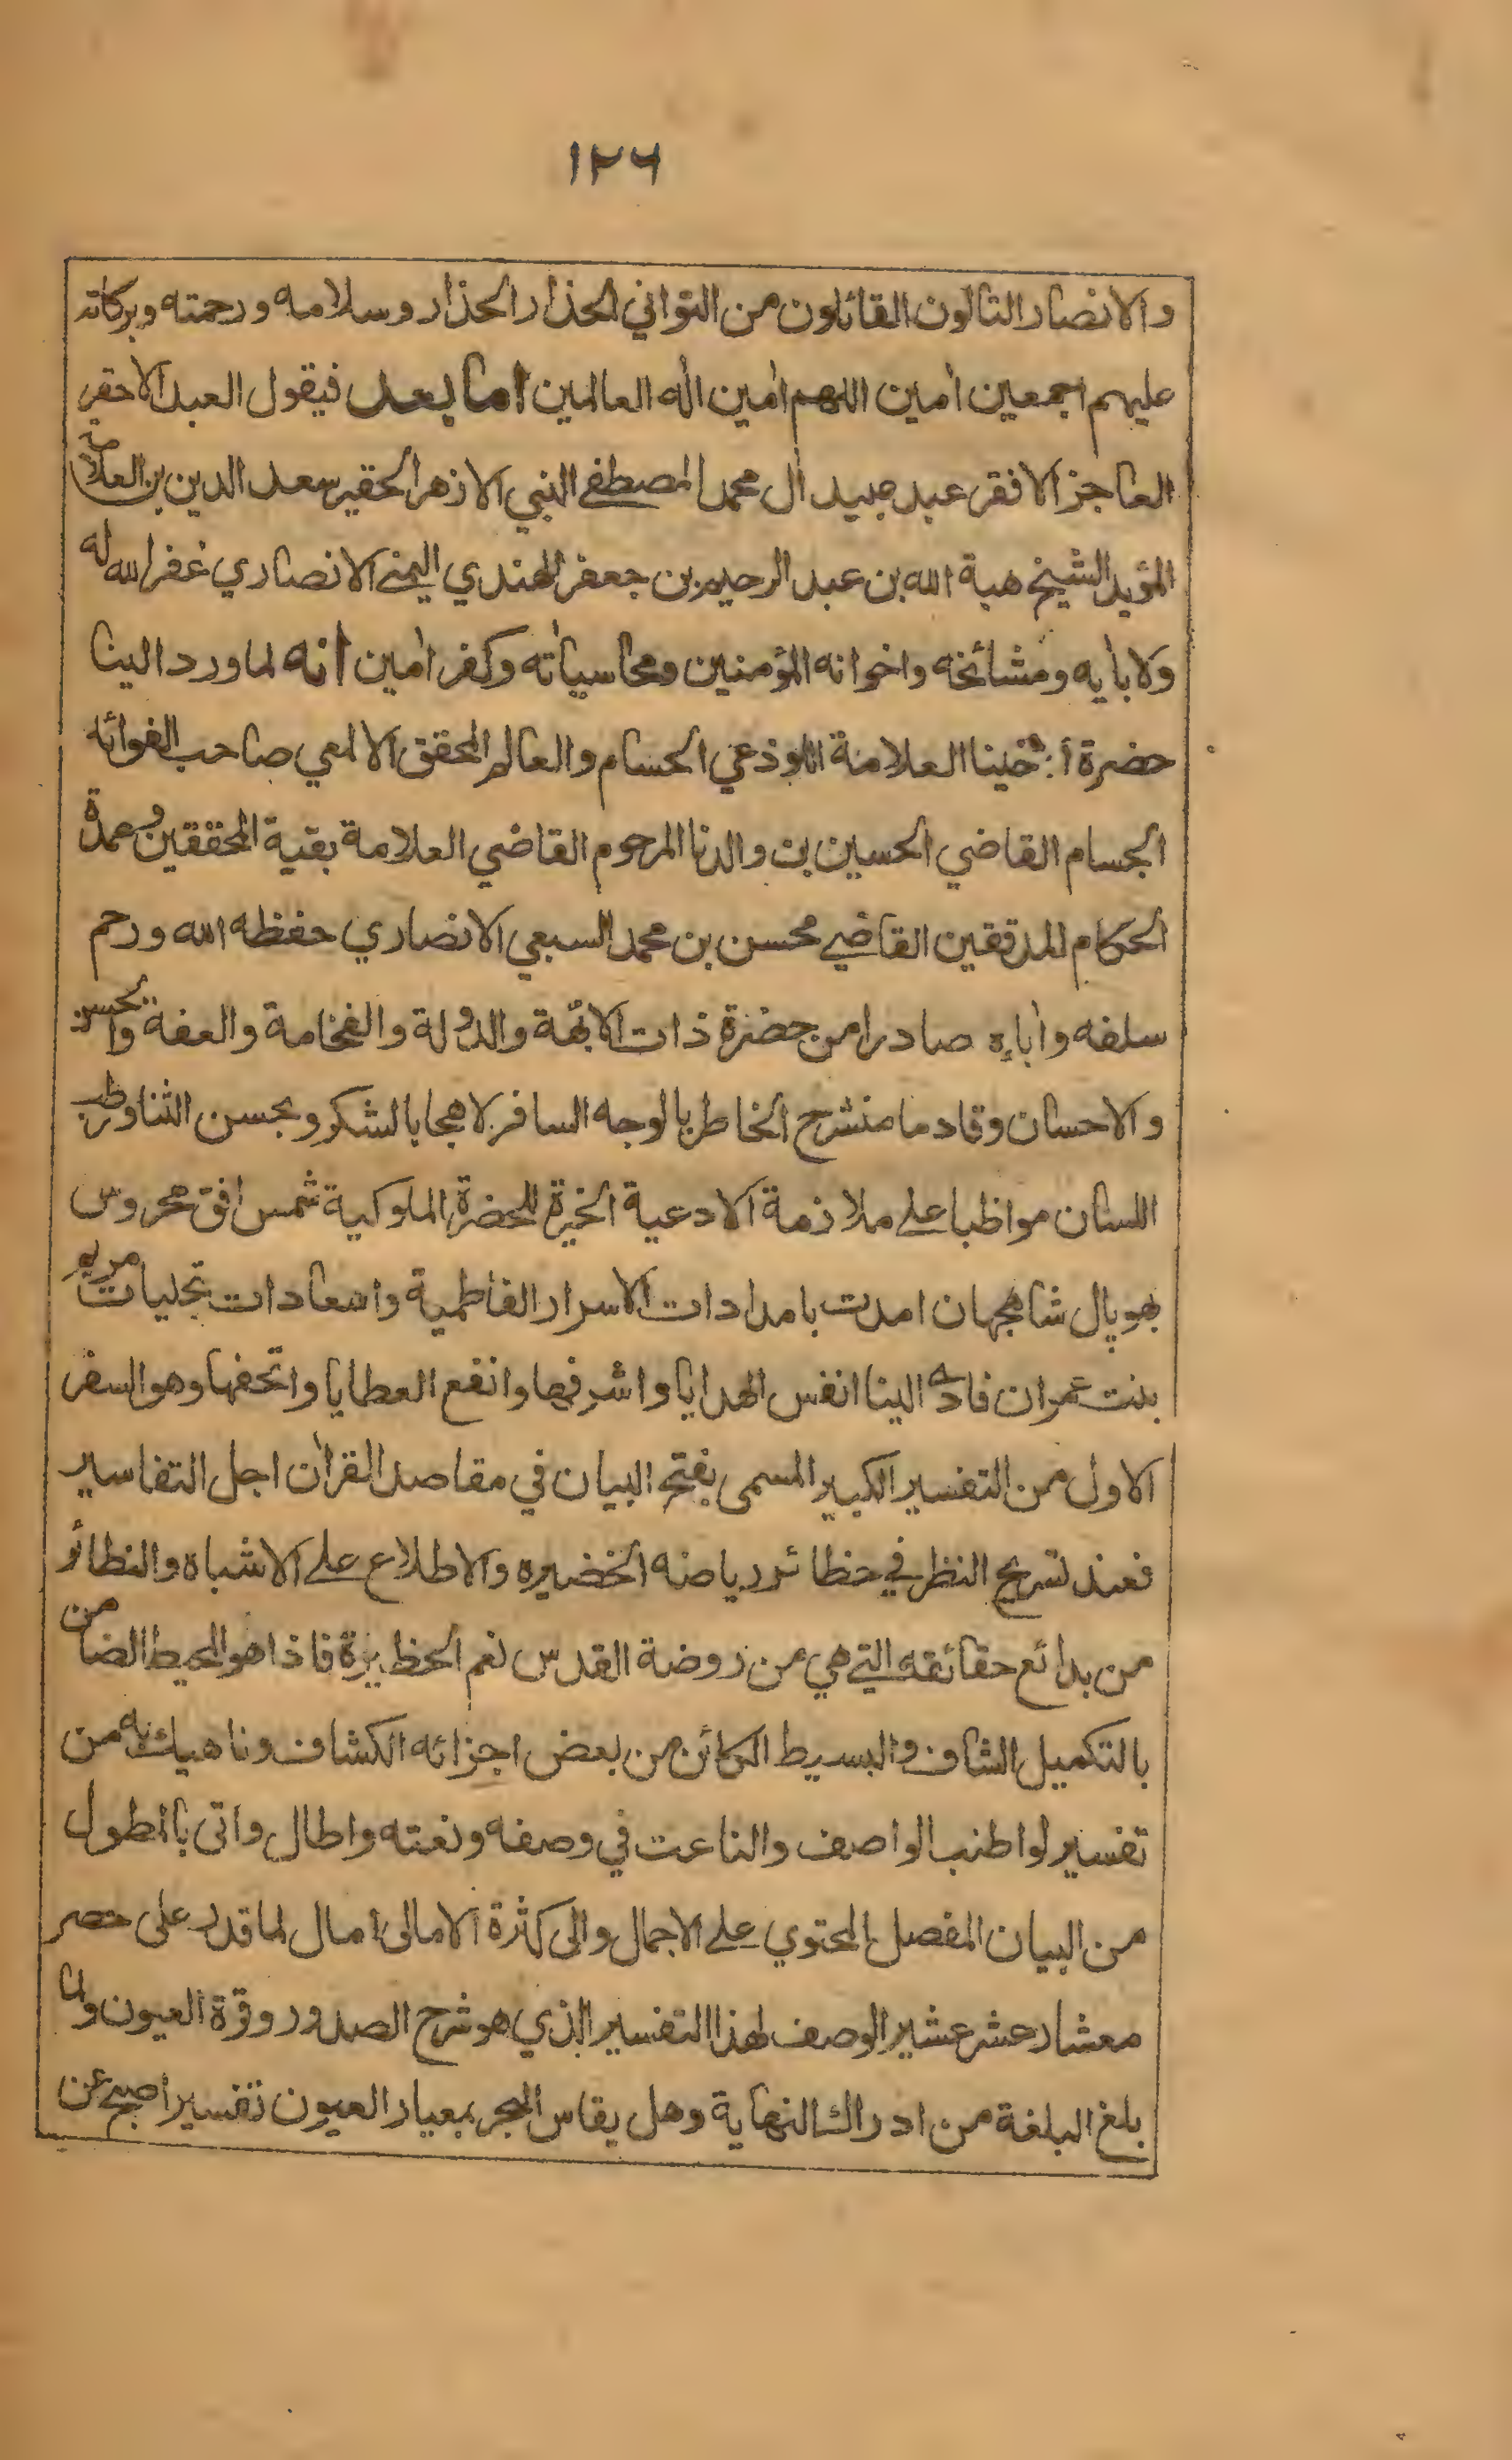 ١٢٦
والانصار التالون القائلون من التواني الحذار الحذار وسلامه ورحمته وبركاته
عليهم اجمعين اٰمين اللهم اٰمين اله العالمين اما بعد فيقول العبد الاحقر
العاجز الافقر عبد عبيد اٰل محمد المصطفے النبي الازهر الحقير سعد الدين بن العلامة
المؤيد الشيخ هبة الله بن عبد الرحيم بن جعفر الهندي اليمنے الانصاري غفر الله له
ولاٰبايه ومشائخه واخوانه المؤمنين ومحا سياٰته وكفر اٰمين انه لما ورد الينا
حضرة أخينا العلامة اللوذعي الحسام والعالم المحقق الالمعي صاحب الفوائد
الجسام القاضي الحسين بن والدنا المرحوم القاضي العلامة بقية المحققين وعمدة
الحكام المدققين القاضے محسن بن محمد السبعي الانصاري حفظه الله ورحم
سلفه واٰباءه صادرا من حضرة ذات الابهة والدولة والفخامة والعفة والحسن
والاحسان وقادما منشرح الخاطر بالوجه السافر لاهجا بالشكر وبحسن الثنا ورطب
اللسان مواظبا علے ملازمة الادعية الخيرة للحضرة الملوكية شمس افق محروس
بهوپال شاهجهان امدت بامدادات الاسرار الفاطمية واسعادات تجليات مريم
بنت عمران فادى الينا انفس الهدايا واشرفها وانفع العطايا واتحفها وهو السفر
الاول من التفسير الكبير المسمى بفتح البيان في مقاصد القراٰن اجل التفاسير
فعند تسريح النظر في حظائر رياضه الخضيره والاطلاع علے الاشباه والنظائر
من بدائع حقائقه التے هي من روضة القدس نعم الحظيرة فاذا هو المحيط الضامن
بالتكميل الشاف والبسيط الكائن من بعض اجزائه الكشاف وناهيك به من
تفسير لو اطنب الواصف والناعت في وصفه ونعته واطال واتى بالمطول
من البيان المفصل المحتوي علے الاجمال والى كثرة الامالى امال لما قدر على حصر
معشار عشر عشير الوصف لهذا التفسير الذي هو شرح الصدور وقرة العيون ولما
بلغ البلغة من ادراك النهاية وهل يقاس البحر بمعيار العيون تفسير اصبح عن